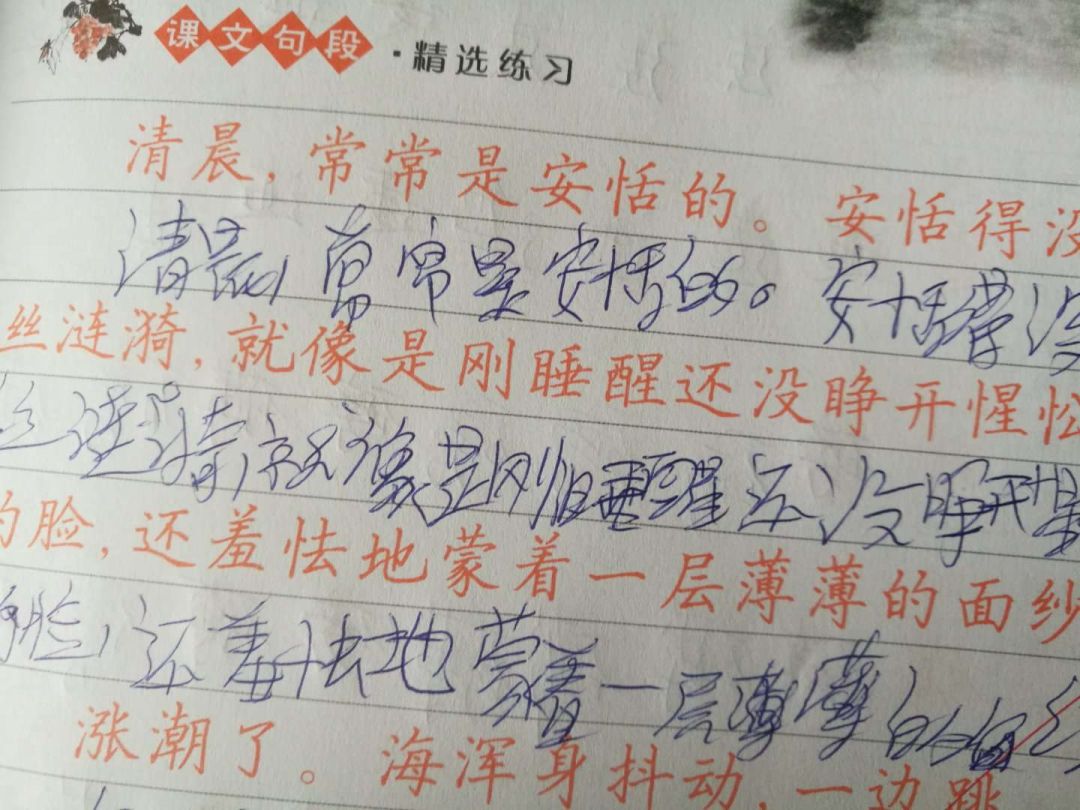 课文句段·精选练习
清晨，常常是安恬的。安恬得没
清晨，常常是安恬的。安恬得没
丝涟漪，就像是刚睡醒还没睁开惺忪
丝涟漪，就像是刚睡醒还没睁开惺
的脸，还羞怯地蒙着一层薄薄的面纱
的脸，还羞怯地蒙着一层薄薄的面
涨潮了。海浑身抖动，一边跳